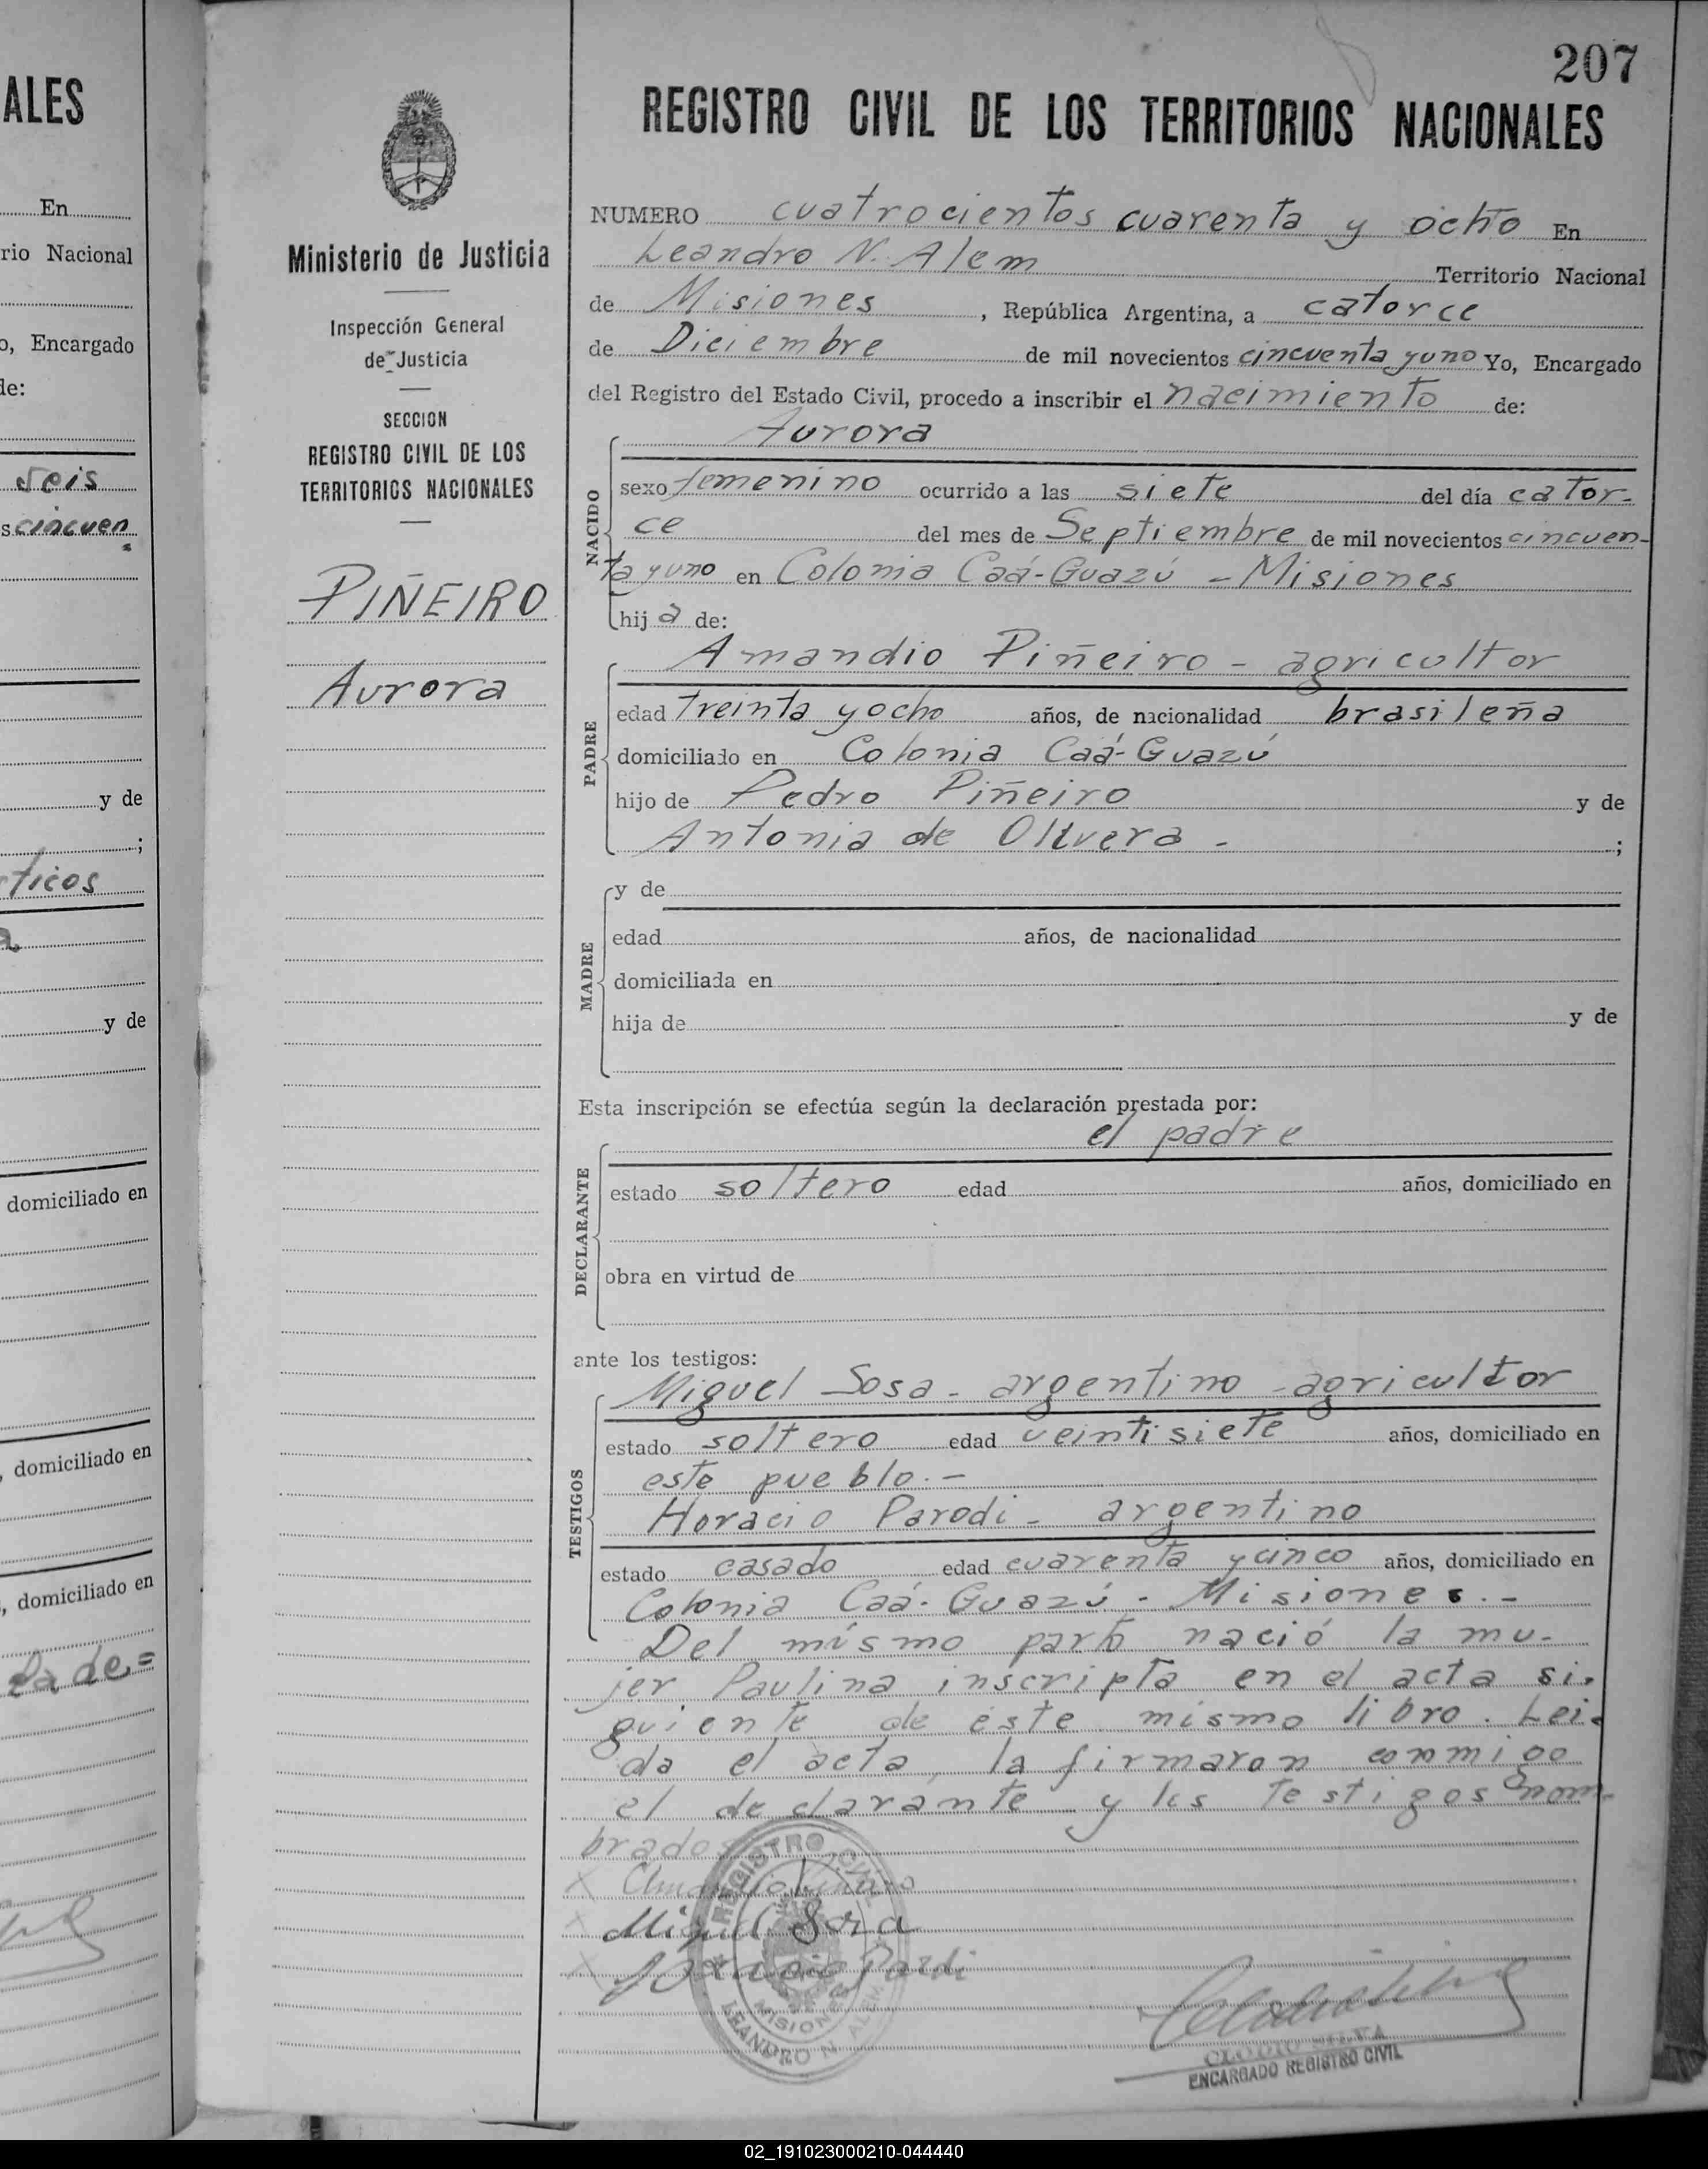 ALES
En
rio Nacional
o, Encargado
de:
seis
s cincuen
y de
;
ticos
a
y de
domiciliado en
, domiciliado en
, domiciliado en
da de=
Ministerio de Justicia
Inspección General
de Justicia
SECCION
REGISTRO CIVIL DE LOS
TERRITORIOS NACIONALES
PIÑEIRO
Aurora
207
REGISTRO CIVIL DE LOS TERRITORIOS NACIONALES
NUMERO cuatrocientos cuarenta y ocho En
Leandro N. Alem Territorio Nacional
de Misiones, República Argentina, a catorce
de Diciembre de mil novecientos cincuenta y uno Yo, Encargado
del Registro del Estado Civil, procedo a inscribir el nacimiento de:
NACIDO
Aurora
sexo femenino ocurrido a las siete del día cator-
ce del mes de Septiembre de mil novecientos cincuen-
ta y uno en Colonia Caá-Guazú - Misiones
hija de:
PADRE
Amandio Piñeiro - agricultor
edad treinta y ocho años, de nacionalidad brasileña
domiciliado en Colonia Caá-Guazú
hijo de Pedro Piñeiro y de
Antonia de Olivera - ;
MADRE
y de
edad años, de nacionalidad
domiciliada en
hija de y de
Esta inscripción se efectúa según la declaración prestada por:
DECLARANTE
el padre
estado soltero edad años, domiciliado en
obra en virtud de
ante los testigos:
TESTIGOS
Miguel Sosa - argentino - agricultor
estado soltero edad veintisiete años, domiciliado en
este pueblo.-
Horacio Parodi - argentino
estado casado edad cuarenta y cinco años, domiciliado en
Colonia Caá-Guazú - Misiones.-
Del mismo parto nació la mu-
jer Paulina inscripta en el acta si-
guiente de éste mismo libro. Lei-
da el acta, la firmaron conmigo
el declarante y los testigos nom-
brados
Miguel Sosa
REGISTRO CIVIL
MISIONES
LEANDRO N. ALEM
ENCARGADO REGISTRO CIVIL
02_191023000210-044440